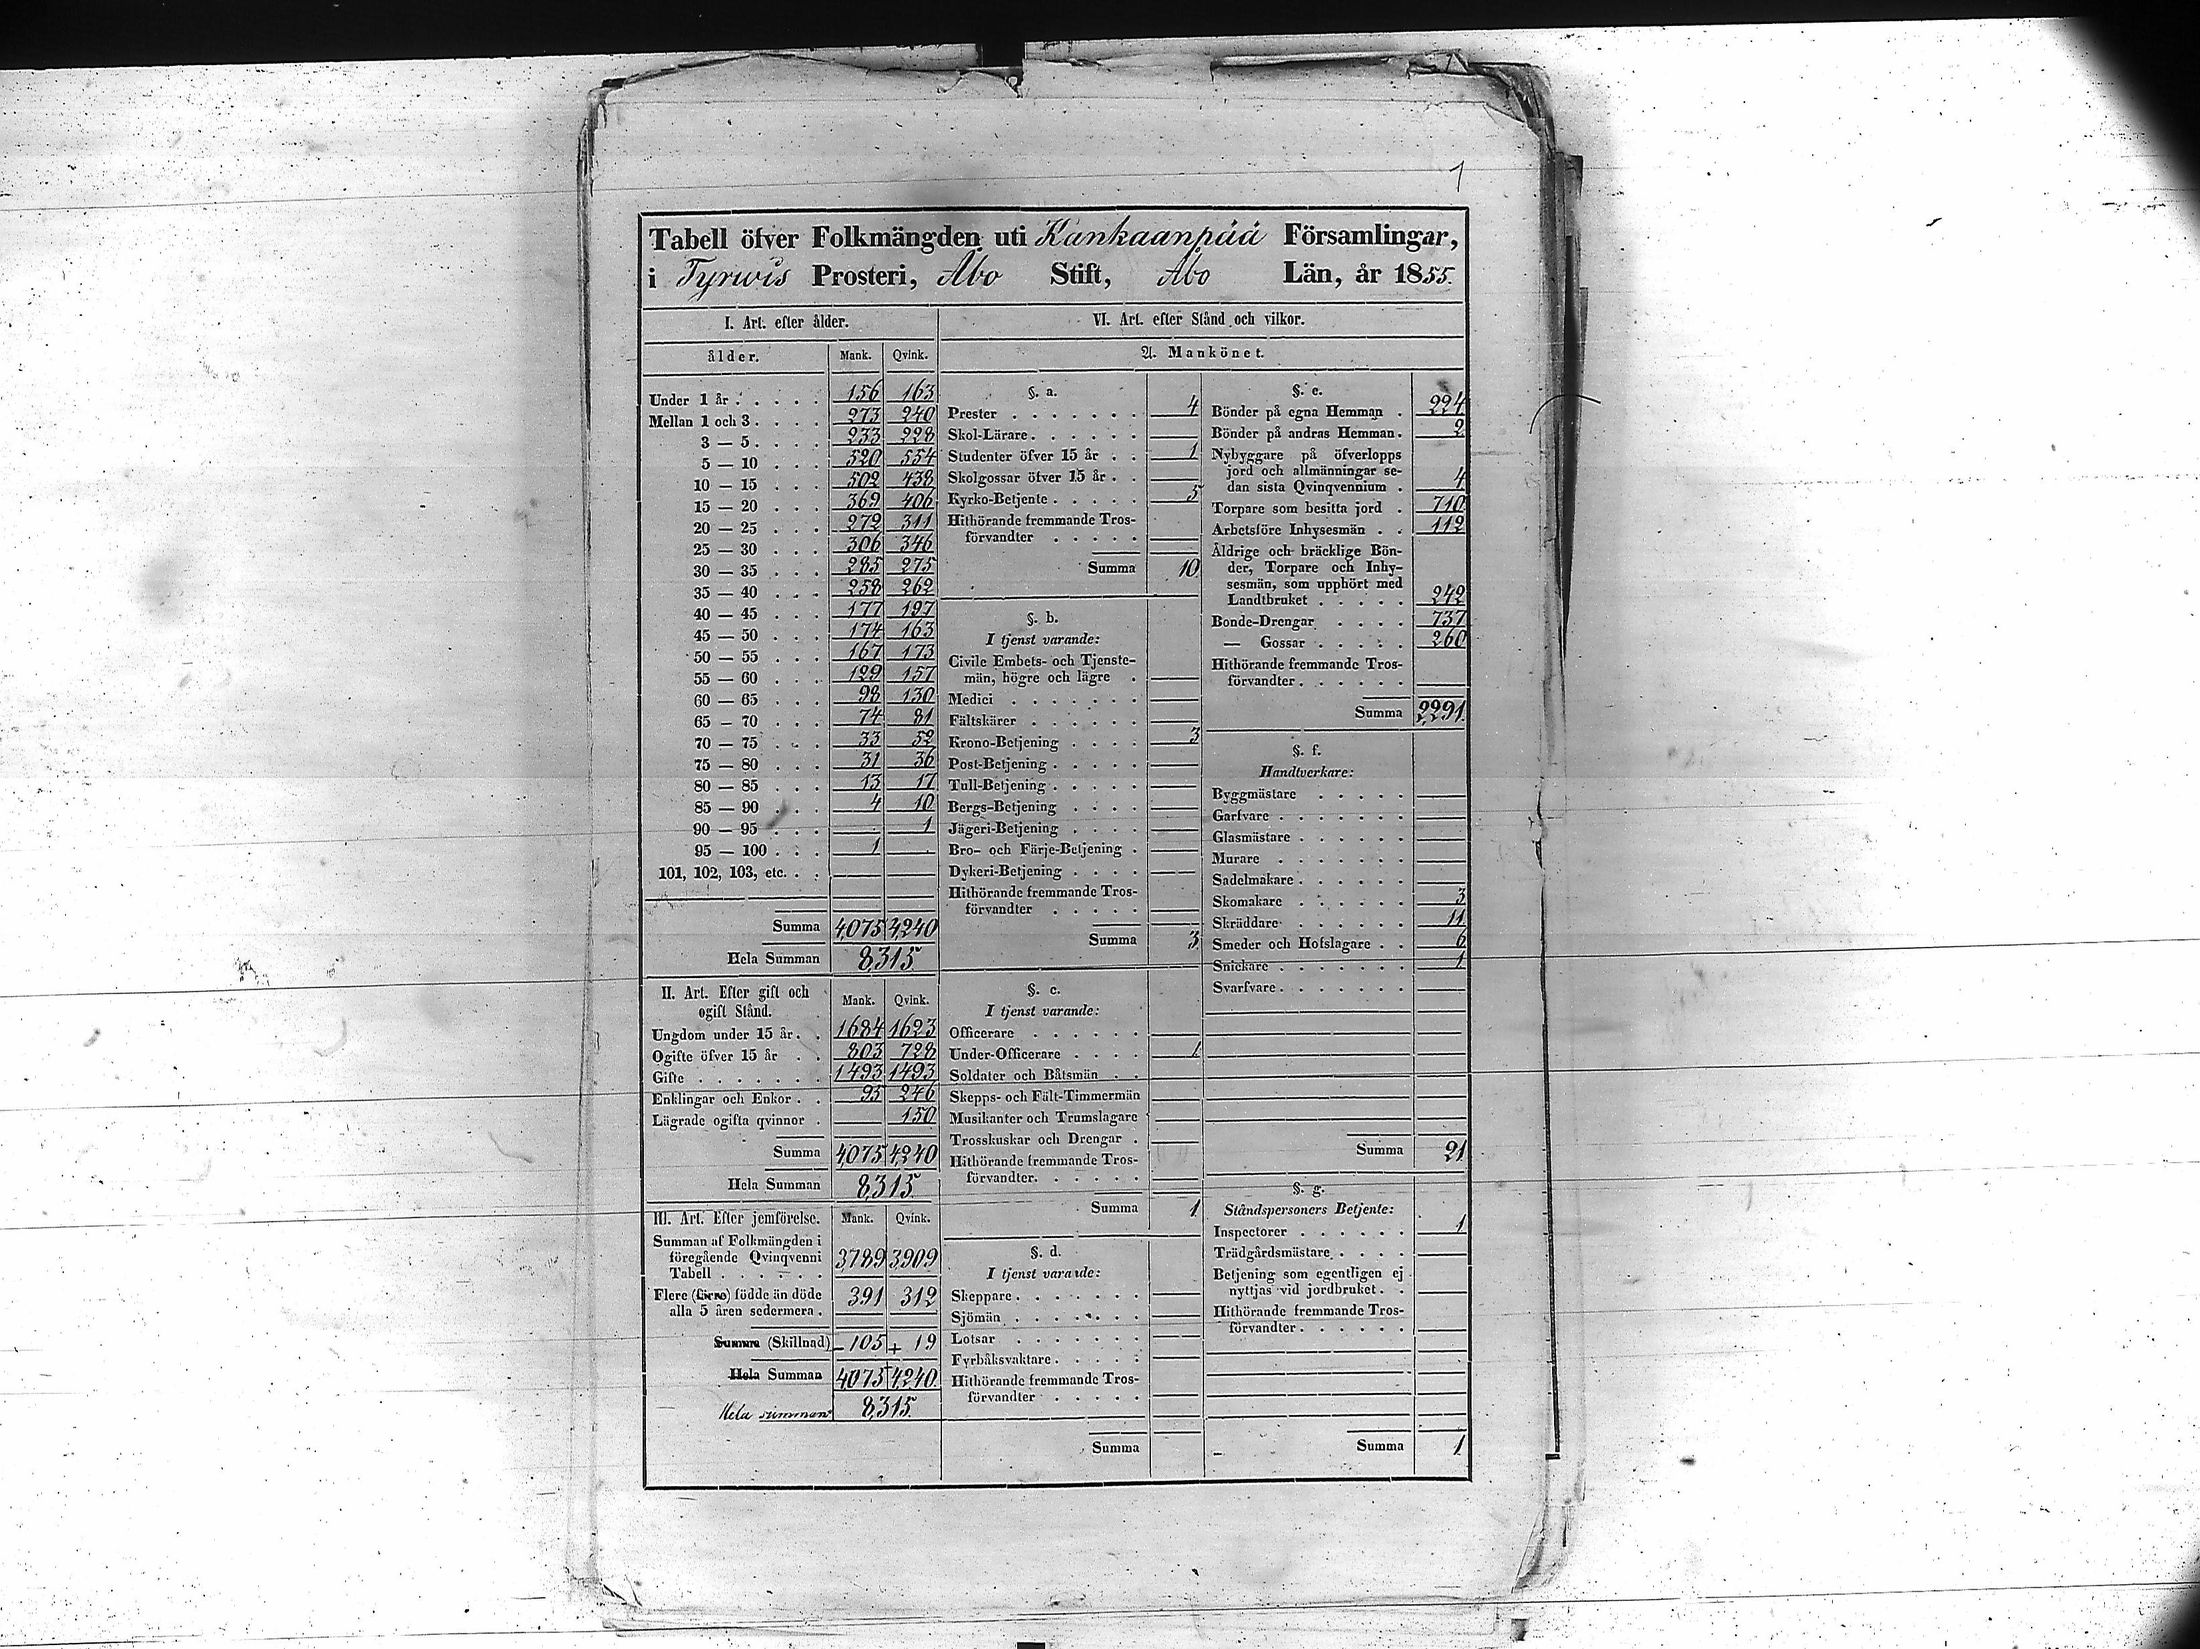 1
Tabell öfver Folkmängden uti Kankaanpää Församlingar,
i Tyrwis Prosteri, Åbo Stift, Åbo Län, år 1855.
I. Art. efter ålder.
ålder. Mank. Qvink.
Under 1 år . . . . . 156 163
Mellan 1 och 3 . . . . 273 240
3 — 5 . . . . 233 228
5 — 10 . . . 520 554
10 — 15 . . . 502 438
15 — 20 . . . 369 406
20 — 25 . . . 272 311
25 — 30 . . . 306 346
30 — 35 . . . 285 275
35 — 40 . . . 258 262
40 — 45 . . . 177 197
45 — 50 . . . 174 163
50 — 55 . . . 167 173
55 — 60 . . . 129 157
60 — 65 . . . 98 130
65 — 70 . . . 74 81
70 — 75 . . . 33 52
75 — 80 . . . 31 36
80 — 85 . . . 13 17
85 — 90 . . . 4 10
90 — 95 . . . . 1
95 — 100 . . . 1 .
101, 102, 103, etc. . .
Summa 4,075 4,240
Hela Summan 8,315
II. Art. Efter gift och
ogift Stånd. Mank. Qvink.
Ungdom under 15 år . . 1684 1623
Ogifte öfver 15 år . . 803 728
Gifte . . . . . . . 1493 1493
Enklingar och Enkor . . 95 246
Lägrade ogifta qvinnor . 150
Summa 4,075 4,240
Hela Summan 8,315
III. Art. Efter jemförelse. Mank. Qvink.
Summan af Folkmängden i
föregående Qvinqvenni
Tabell . . . . . . 3789 3909
Flere (färre) födde än döde
alla 5 åren sedermera . 391 312
Summa (Skillnad) — 105 + 19
Hela Summan 4075 + 4240
Hela summan 8,315
VI. Art. efter Stånd och vilkor.
A. Mankönet.
§. a.
Prester . . . . . . . 4
Skol-Lärare . . . . . .
Studenter öfver 15 år . . 1
Skolgossar öfver 15 år . .
Kyrko-Betjente . . . . . 5
Hithörande fremmande Tros-
förvandter . . . . .
Summa 10
§. b.
I tjenst varande:
Civile Embets- och Tjenste-
män, högre och lägre .
Medici . . . . . . .
Fältskärer . . . . . .
Krono-Betjening . . . . 3
Post-Betjening . . . . .
Tull-Betjening . . . . .
Bergs-Betjening . . . .
Jägeri-Betjening . . . .
Bro- och Färje-Betjening .
Dykeri-Betjening . . . .
Hithörande fremmande Tros-
förvandter . . . . .
Summa 3
§. c.
I tjenst varande:
Officerare . . . . . .
Under-Officerare . . . . 1
Soldater och Båtsmän . .
Skepps- och Fält-Timmermän
Musikanter och Trumslagare
Trosskuskar och Drengar .
Hithörande fremmande Tros-
förvandter . . . . . .
Summa 1
§. d.
I tjenst varande:
Skeppare . . . . . . .
Sjömän . . . . . . .
Lotsar . . . . . . .
Fyrbåksvaktare . . . . .
Hithörande fremmande Tros-
förvandter . . . . .
Summa
§. e.
Bönder på egna Hemman . 224
Bönder på andras Hemman . 2
Nybyggare på öfverlopps
jord och allmänningar se-
dan sista Qvinqvennium . 4
Torpare som besitta jord . 710
Arbetsföre Inhysesmän . . 112
Åldrige och bräcklige Bön-
der, Torpare och Inhy-
sesmän, som upphört med
Landtbruket . . . . . 242
Bonde-Drengar . . . . 737
— Gossar . . . . . 260
Hithörande fremmande Tros-
förvandter . . . . . .
Summa 2,291
§. f.
Handtverkare:
Byggmästare . . . . .
Garfvare . . . . . . .
Glasmästare . . . . . .
Murare . . . . . . .
Sadelmakare . . . . . .
Skomakare . . . . . . 3
Skräddare . . . . . . 11
Smeder och Hofslagare . . 6
Snickare . . . . . . . 1
Svarfvare . . . . . . .
Summa 21
§. g.
Ståndspersoners Betjente:
Inspectorer . . . . . . 1
Trädgårdsmästare . . . .
Betjening som egentligen ej
nyttjas vid jordbruket . .
Hithörande fremmande Tros-
förvandter . . . . . .
Summa 1